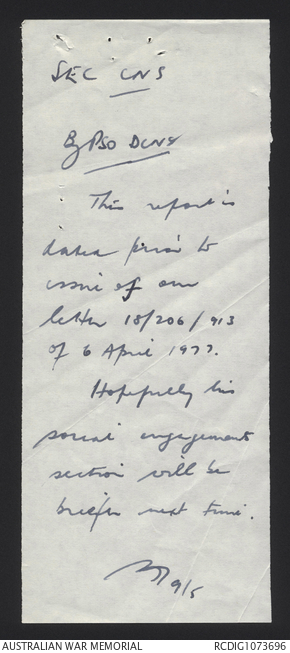 SEC CNS
By PSO DCNS
This report is
dated prior to
issue of our
letter 18/206/913
of 6 April 1977.
Hopefully his
social engagement
section will be
briefer next time.
9/5
AUSTRALIAN WAR MEMORIAL
RCDIG1073696